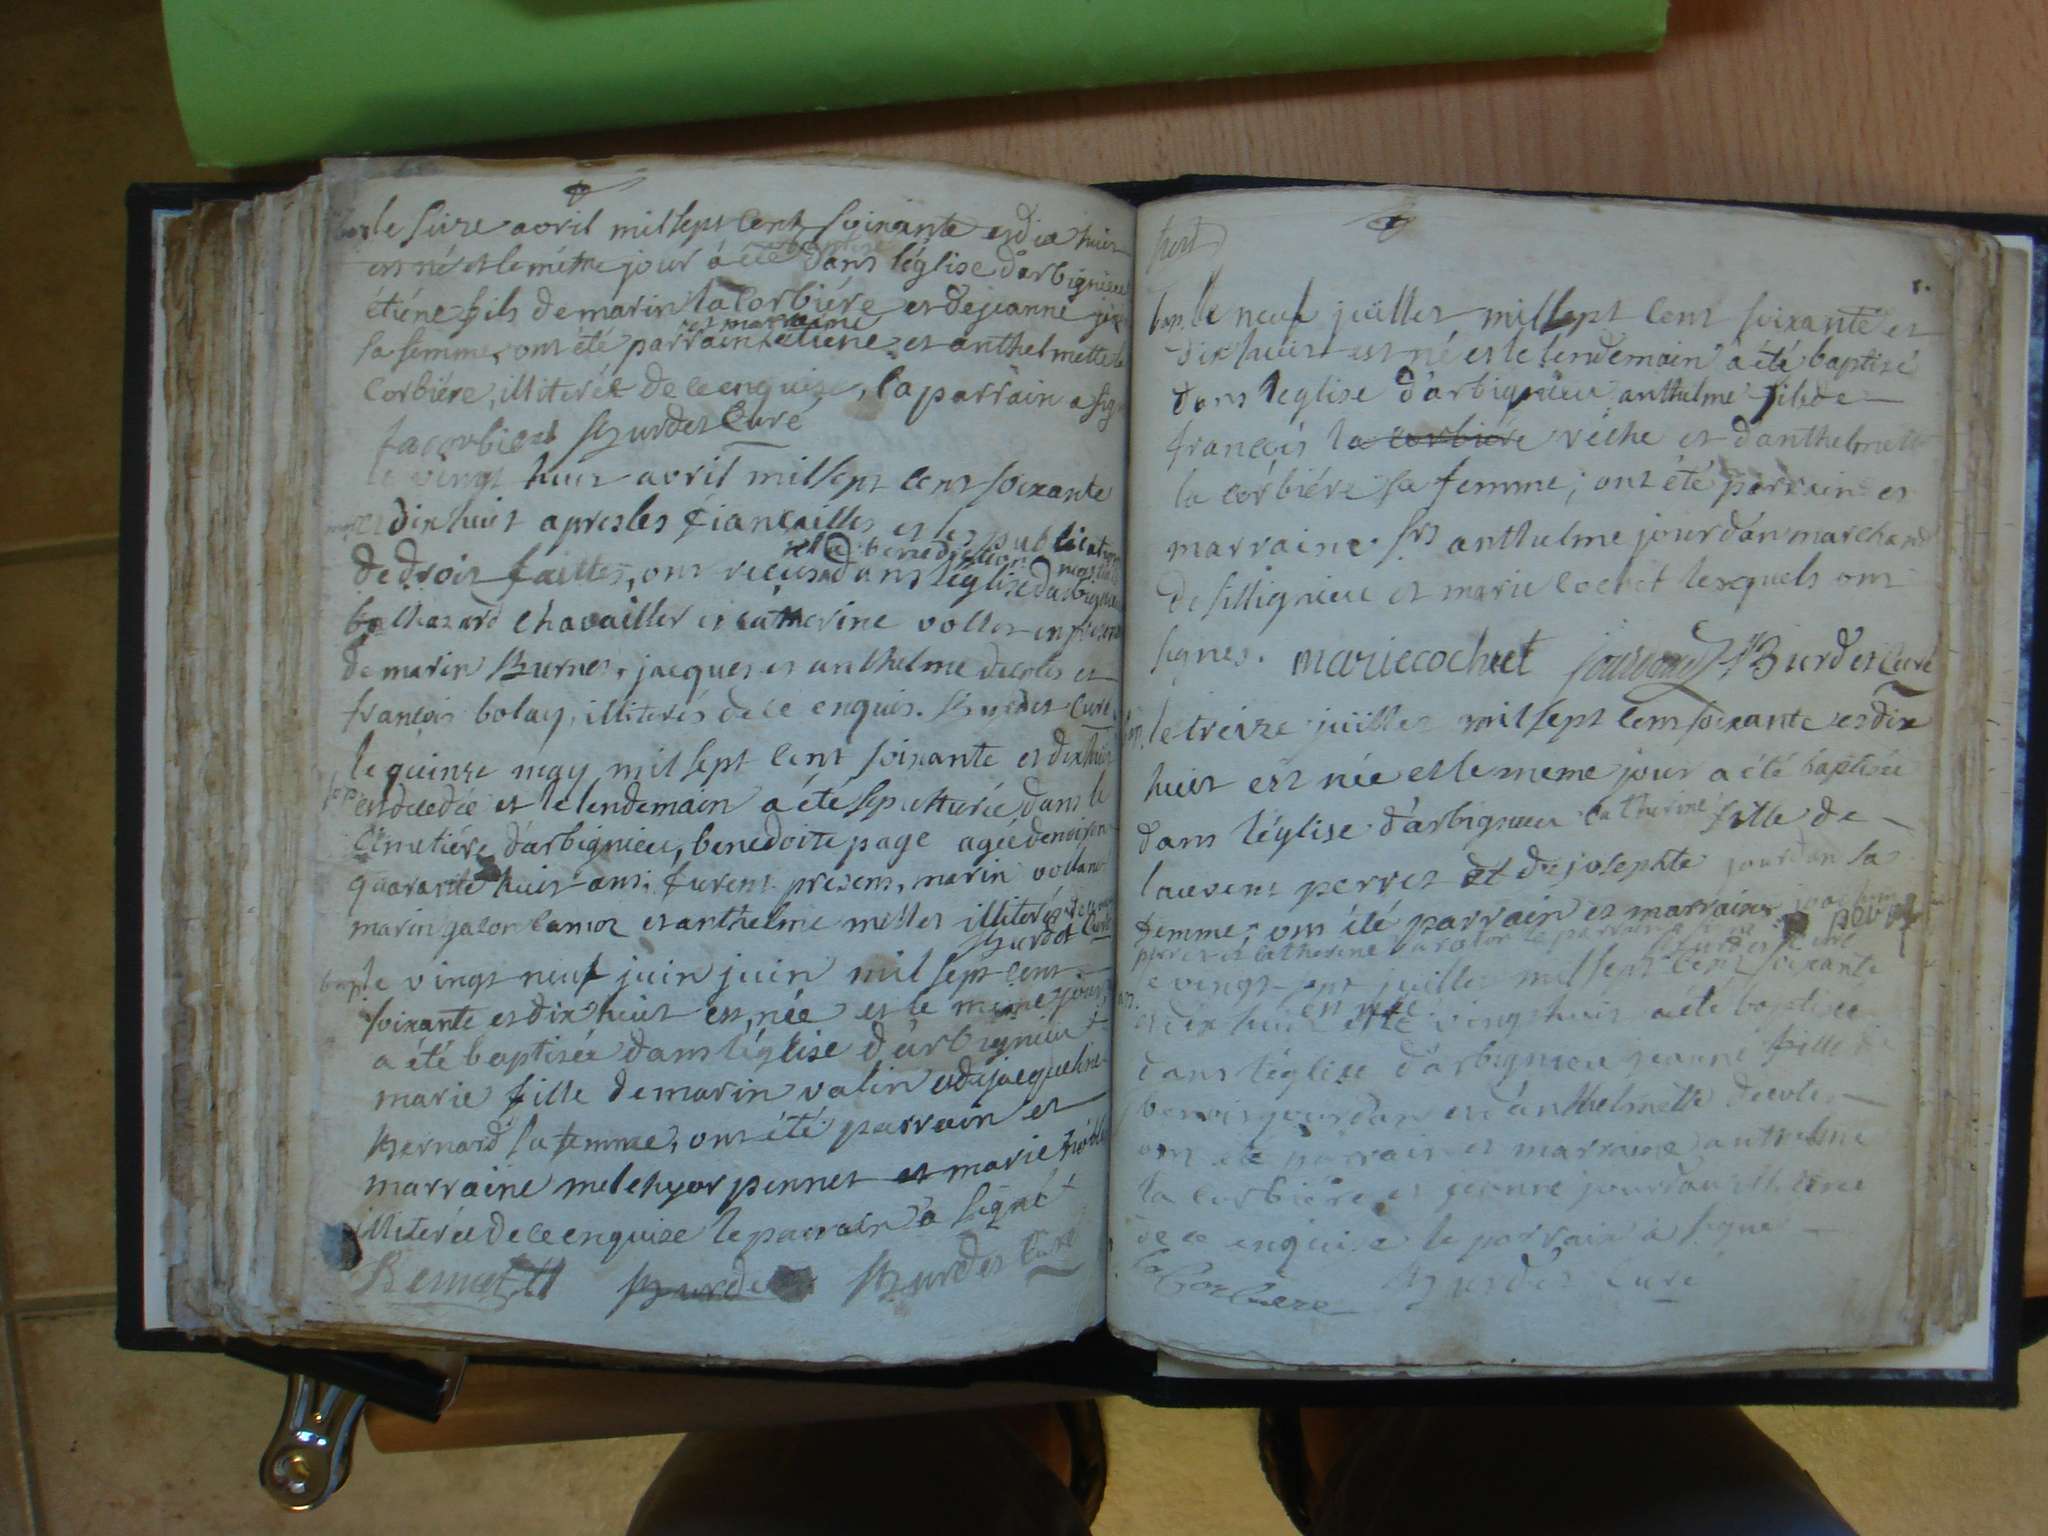 bap. le size avril mil sept cent soixante et dix huit
est né et le même jour a été baptisé dans l'église d'arbignieu
étiéne fils de marin la corbiére et de jeanne
sa femme, ont été parrain et marraine etiéne et anthelmette la
corbiére, illiterée de ce enquise, la parrain a signé
lacorbiere Burdet Curé
le vingt huit avril mil sept cent soixante
et dix huit apres les fiançailles et les publications
de droit faittes, ont recus la benediction nuptiale dans l'église d'arbignieu
balthazard chavailler et catherine vollet en presence
de marin Burnet, jacques et anthelme decoles et
françois bolay, illiterés de ce enquis. Burdet Curé
le quinze may mil sept cent soixante et dix huit
sep. est decedée et le lendemain a été sepulturée dans le
cimetiére d'arbignieu, benedoite page agée denviron
quarante huit ans. furent presens, marin
marin et anthelme mettet illiterés
Burdet Curé
bap. le vingt neuf juin juin mil sept cent
soixante et dix huit est née et le même jour
a été baptisée dans l'église d'arbignieu
marie fille de marin valin et de jacqueline
Bernard sa femme, ont été parrain et
marraine melchyor pennet et marie
illiterée de ce enquise le parrain a signé
Burdet Burdet Curé
bap. le neuf juillet mil sept cent soixante et
dix huit est né et le lendemain a été baptisé
dans l'eglise d'arbignieu anthelme fils de
françois la corbiére réche et d'anthelmette
la corbiére sa femme; ont été parrain et
marraine Srs anthelme jourdan marchand
de sillignieu et marie cochet lesquels ont
signes. marie cochet jourdan Burdet Curé
bap. le treize juillet mil sept cent soixante et dix
huit est née et le meme jour a été baptisée
dans l'église d'arbignieu catherine fille de
laurent perret et de josephte jourdan sa
femme; ont été parrain et marraine joachim
perret et catherine le parrain
Burdet Curé
le vingt sept juillet mil sept cent soixante
et dix huit est née et le vingt huit a été baptisée
dans l'église d'arbignieu jeanne fille de
benoit jourdan et d'anthelmette decoles
ont été parrain et marraine anthelme
la corbiére et jeanne jourdan illiterée
de ce enquise le parrain a signé
la Corbiere Burdet Curé